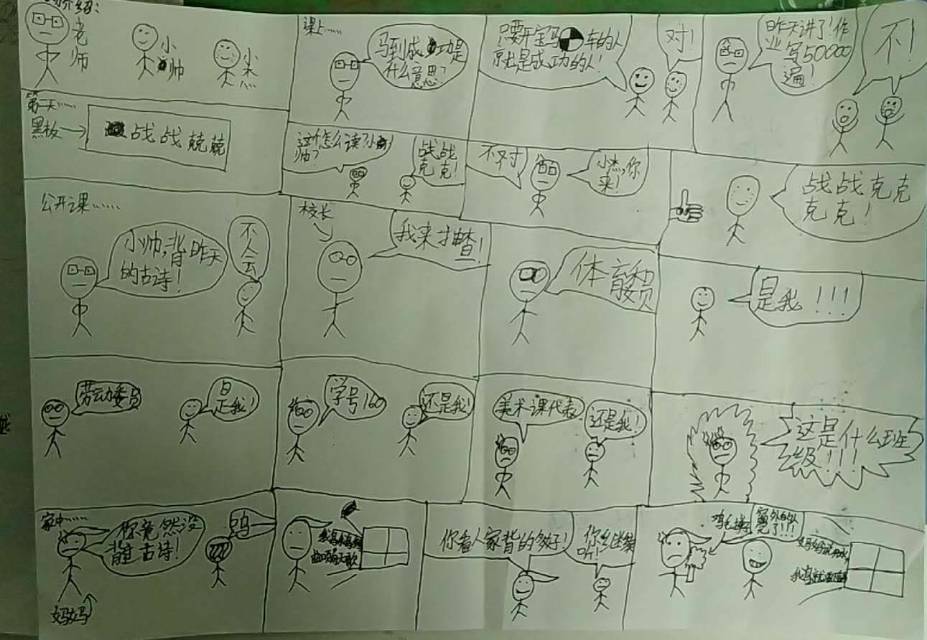 介绍:
老师
小帅
小杰
课上……
马到成功是
什么意思?
只要开宝马车的人
就是成功的人!
对!
昨天讲了!作
业写50000
遍!
不!
第二天……
黑板→
战战兢兢
这个怎么读?小
帅?
战战
克克!
不对
小杰,你
来!
战战克克
克克!
公开课……
小帅,背昨天
的古诗!
不会
校长
我来抽查!
体育委员
是我!!!
劳动委员
是我!
学号160
还是我!
美术课代表
还是我!
这是什么班
级!!!
家中……
你竟然没
背古诗!
呜
妈妈
你看人家背的多好!
你继续
听!
鸡毛掸子
窗外的人
完了!!!